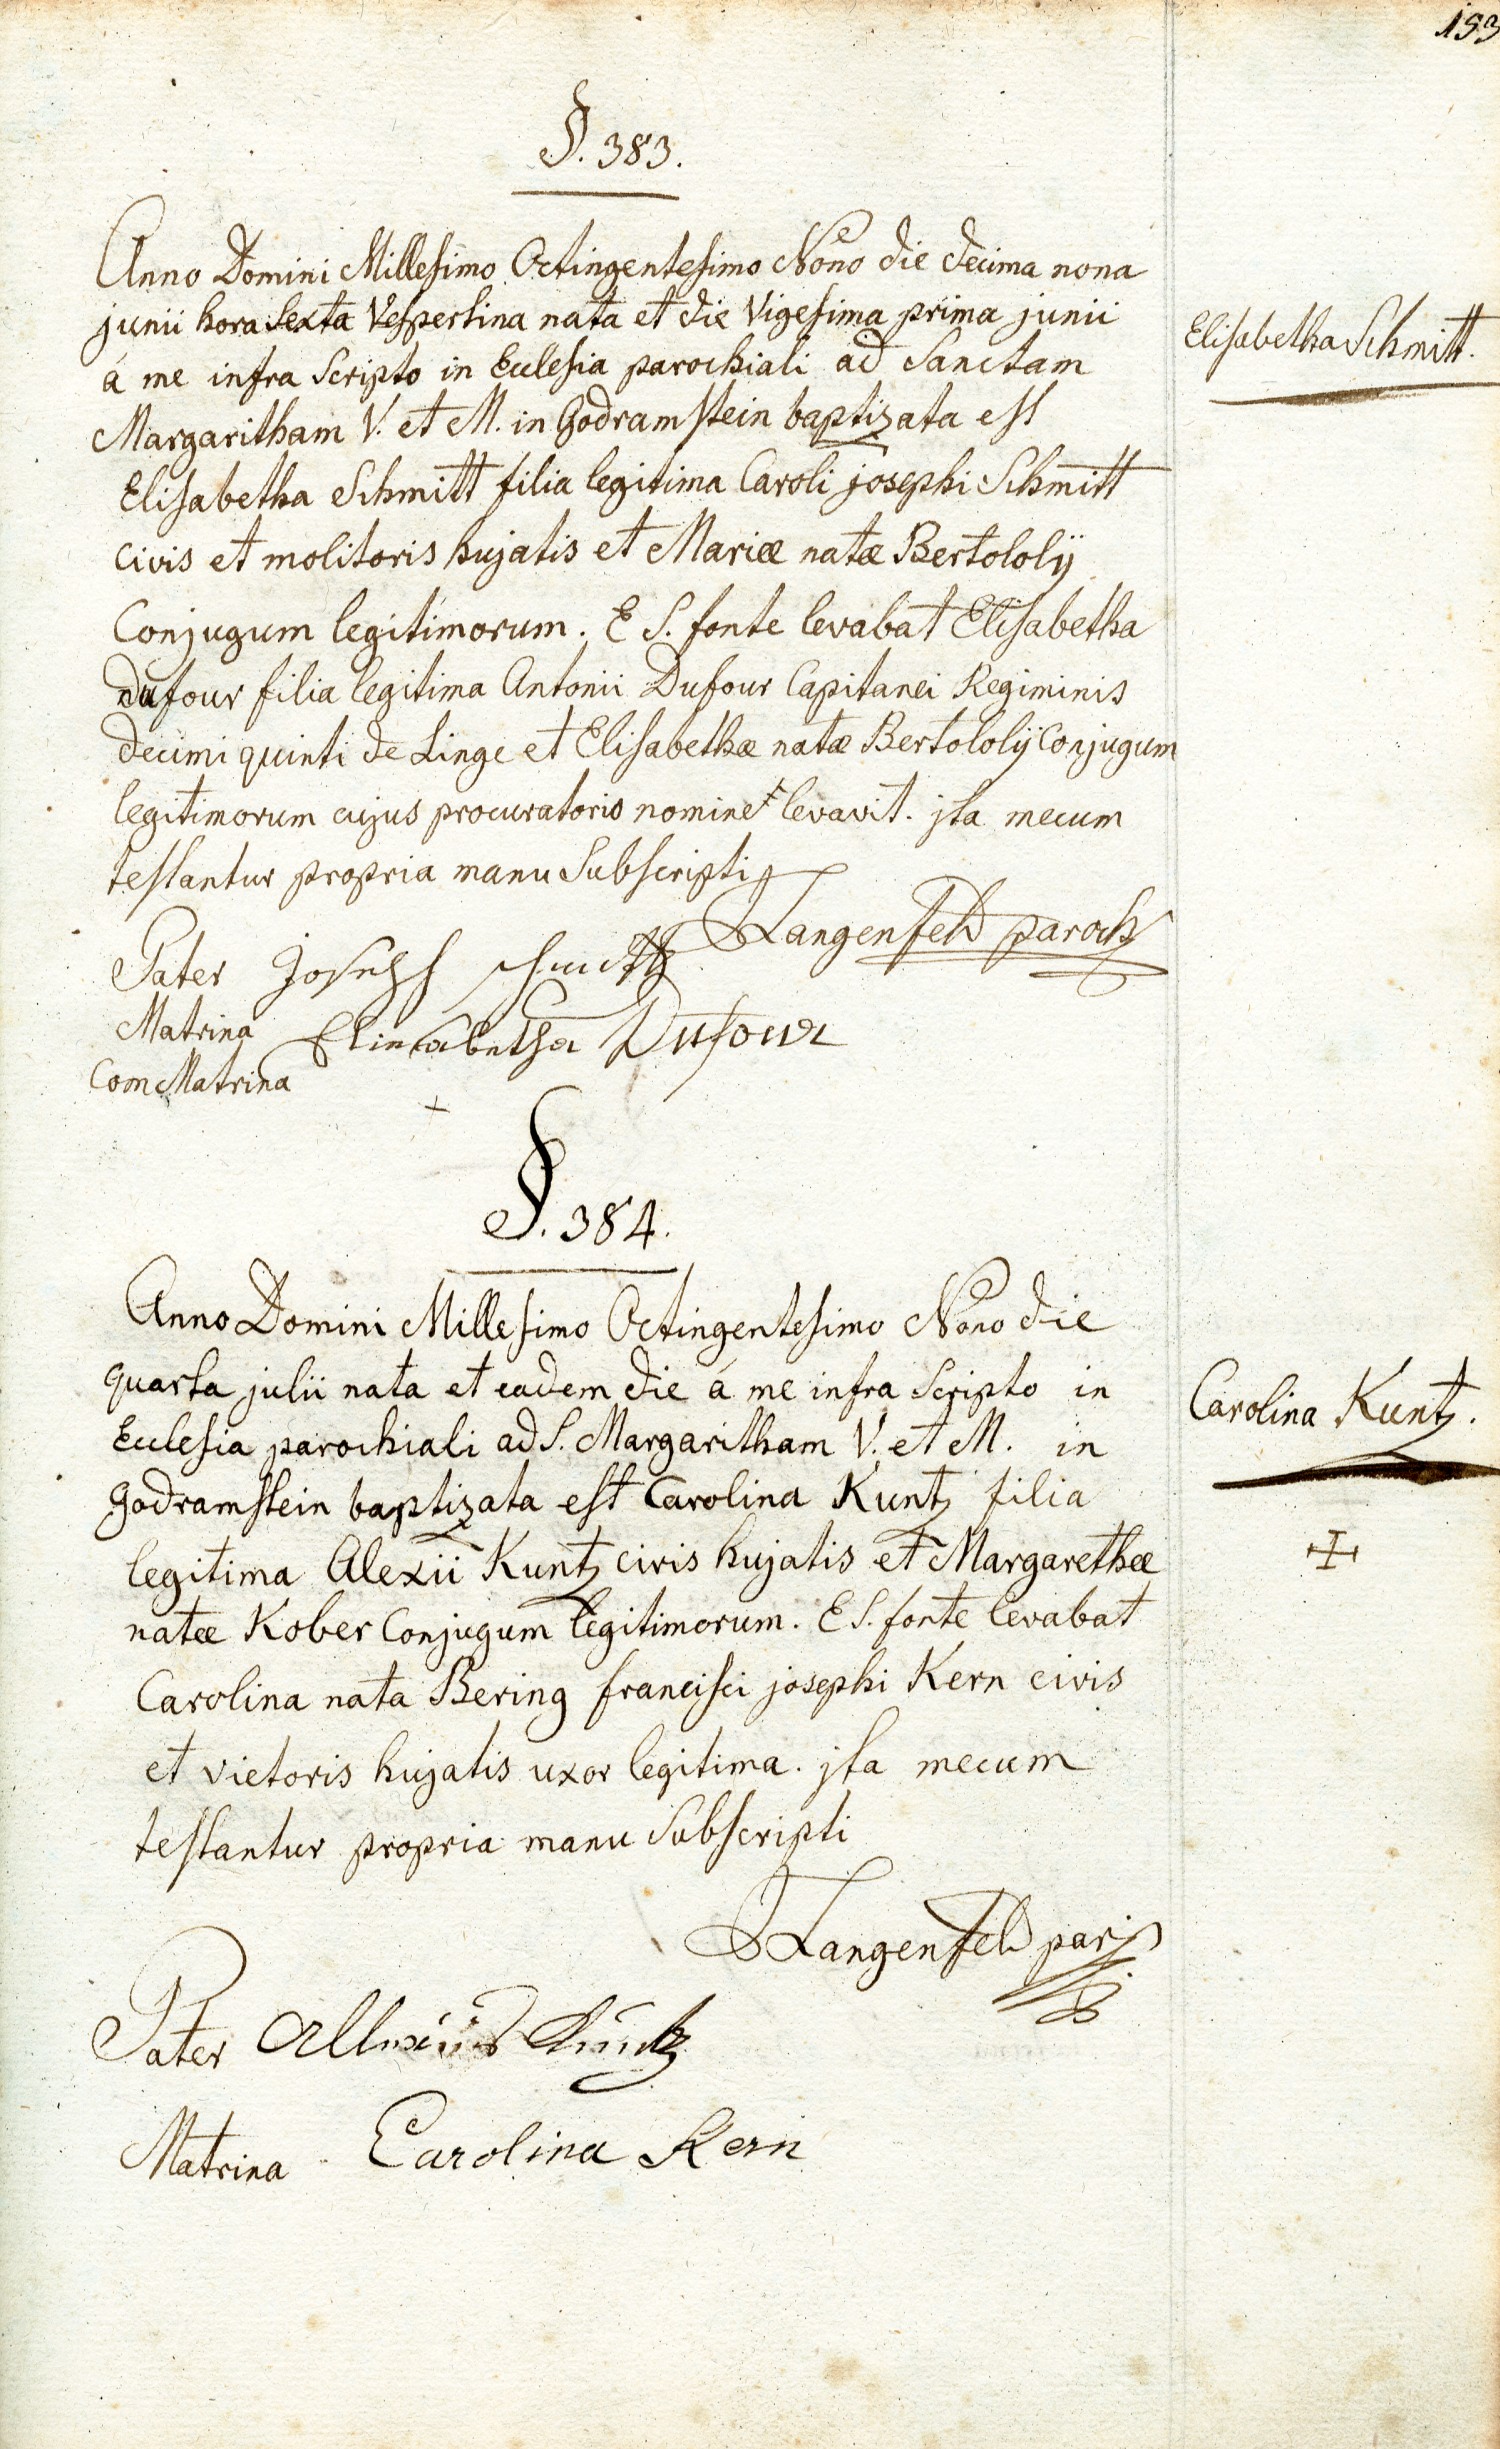 183
§. 383.
Anno Domini Millesimo Octingentesimo Nono die decima nona
junii hora sexta Vespertina nata et die Vigesima prima junii
á me infra Scripto in Ecclesia parochiali ad Sanctam
Margaritham V. et M. in Godramstein baptizata est
Elisabetha Schmitt filia legitima Caroli josephi Schmitt
civis et molitoris hujatis et Mariæ natæ Bertololÿ
Conjugum legitimorum. E S. fonte levabat Elisabetha
Dufour filia legitima Antonii Dufour Capitanei Regiminis
decimi quinti de Linge et Elisabethæ natæ Bertololÿ Conjugum
legitimorum cujus procuratorio nomine ‡ levavit. jta mecum
testantur propria manu Subscripti
Langenfeld paroch
Pater Joseph schmitt
Matrina Elisabetha Dufour
ComMatrina +
Elisabetha Schmitt.
§. 384.
Anno Domini Millesimo Octingentesimo Nono die
quarta julii nata et eadem die á me infra Scripto in
Ecclesia parochiali ad S. Margaritham V. et M. in
godramstein baptizata est Carolina Kuntz filia
legitima Alexii Kuntz civis hujatis et Margarethæ
natæ Kober Conjugum legitimorum. E S. fonte levabat
Carolina nata Bering francisci josephi Kern civis
et vietoris hujatis uxor legitima. jta mecum
testantur propria manu Subscripti
Langenfeld par
Pater Allexius Kuntz
Matrina Carolina Kern
Carolina Kuntz.